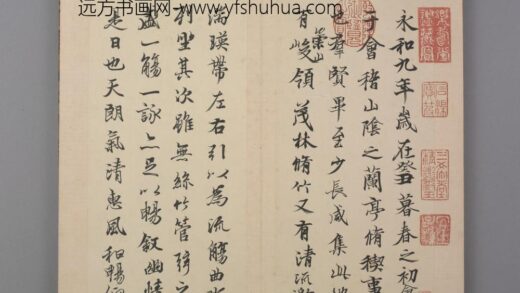 远方书画网 www.yfshuhua.com
永和九年歲在癸丑暮春之初會
于會稽山陰之蘭亭脩稧事
也羣賢畢至少長咸集此地
有崇山峻領茂林脩竹又有清流激
湍暎帶左右引以為流觴曲水
列坐其次雖無絲竹管弦之
盛一觴一詠亦足以暢敘幽情
是日也天朗氣清惠風和暢仰